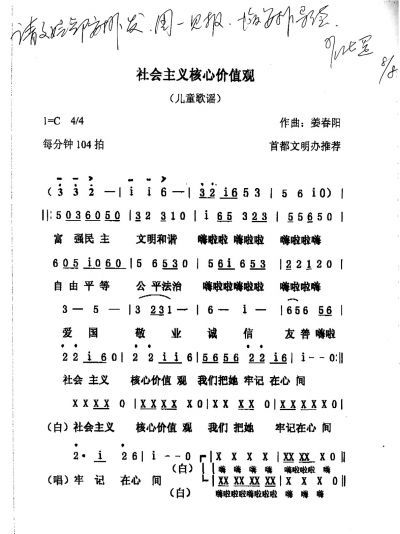 社会主义核心价值观
（儿童歌谣）
1=C 4/4 作曲：姜春阳
每分钟104拍 首都文明办推荐
( 3 3 2 - | i i 6 - | 3 2 i 6 5 3 | 5 6 i 0 ) |
||: 5 0 3 6 0 5 0 | 3 2 3 2 1 0 | i 6 5 3 2 3 | 5 5 6 5 0 |
富 强 民 主 文明和谐 嗨啦啦 嗨啦啦 嗨啦啦嗨
6 0 5 i 0 6 0 | 5 6 5 3 0 | 5 6 i 6 5 3 | 2 2 1 2 0 |
自 由 平 等 公 平法治 嗨啦啦 嗨啦啦 嗨啦啦嗨
3 - 5 - | 3 2 3 1 - | 6 - i - | 6 5 6 5 6 |
爱 国 敬 业 诚 信 友 善 嗨啦
2 2 i 6 0 | 2 2 i 2 i 6 | 5 6 5 6 2 2 i 6 | i - - 0 :||
社会 主义 核心价值 观 我们把她 牢记 在心 间
X X X X 0 | X X X X X 0 | X X X X X X X | X X X X 0 |
（白）社会主义 核心价值 观 我们 把她 牢记在心 间
2 · i 2 6 | i - - 0 | X X X X | X X X X 0 ||
（白） 嗨 嗨 嗨 嗨 嗨啦啦啦 嗨 嗨
（唱）牢 记 在心 间 XX XX XX X | XX XX X 0 ||
（白） 嗨啦啦啦嗨啦嗨 嗨啦嗨啦 嗨